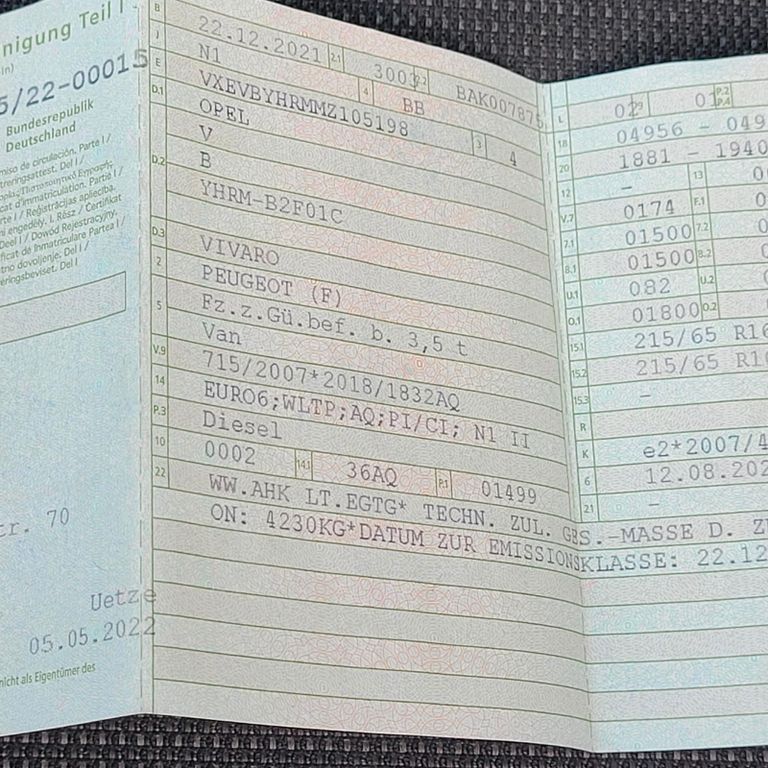 nigung Teil I
5/22-00015
Bundesrepublik
Deutschland
treringsattest. Del I /
Uetze
05.05.2022
nicht als Eigentümer des
B 22.12.2021 2.1 3003 2.2 BAK007875
J N1 4 BB
E VXEVBYHRMMZ105198 3 4
D.1 OPEL
D.2 V
B
YHRM-B2F01C
D.3 VIVARO
2 PEUGEOT (F)
5 Fz.z.Gü.bef. b. 3,5 t
Van
V.9 715/2007*2018/1832AQ
14 EURO6;WLTP;AQ;PI/CI; N1 II
P.3 Diesel
10 0002 14.1 36AQ P.1 01499
22 WW.AHK LT.EGTG* TECHN. ZUL. GES.-MASSE D. Z
ON: 4230KG*DATUM ZUR EMISSIONSKLASSE: 22.12
L 02 9 01 P.2 P.4
18 04956 - 049
20 1881 - 1940
12 – 13 0
V.7 0174 F.1 0
7.1 01500 7.2 0
8.1 01500 8.2 0
U.1 082 U.2 0
O.1 01800 O.2 0
15.1 215/65 R16
15.2 215/65 R16
15.3 –
R
K e2*2007/4
6 12.08.202
21 –